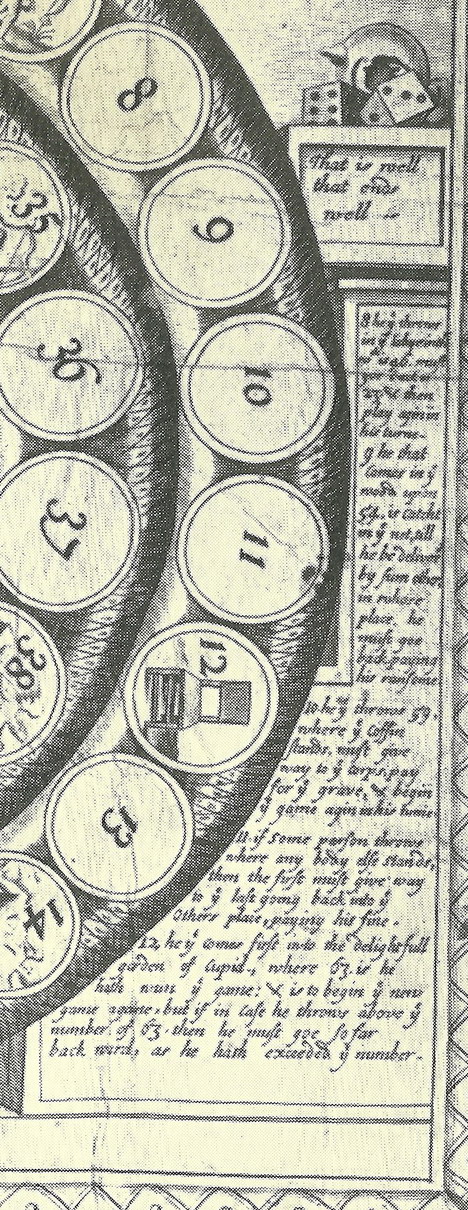 8
9
10
11
12
13
14
35
36
37
38
That is well
that ends
well
8 he ẏ throws
in ẏ labyrint
must
then
play again
his turne.
9 he that
Comes in ẏ
upon
54, is catcht
in ẏ net, till
he be deliverd
by som other
in whose
place, he
must goe
back, paying
his ransome
10. he ẏ throws 59,
where ẏ Coffin
stands, must give
way to ẏ Corps, pay
for ẏ grave, & begin
ẏ game agin in his turne
11. if some person throwe
where any body else stands,
then the first must give way
to ẏ last going back into ẏ
Others place, paying his fine.
12, he ẏ comes first into the delightfull
garden of Cupid, where 63. is he
hath wun ẏ game: & is to begin ẏ new
game againe, but if in case he throws above ẏ
number of 63. then he must goe so far
back ward, as he hath exceeded ẏ number.